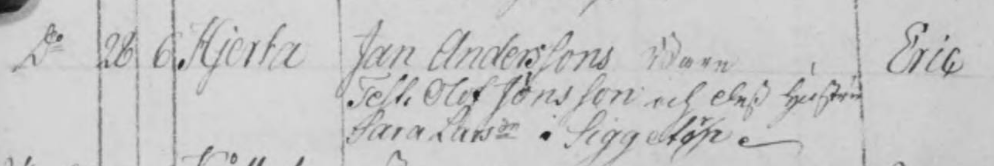 D:o 28 6 Hjerta Jan Anderssons Barn Eric
Test. Olof Jönsson och dess hustru
Sara Lars dr i Siggetorp